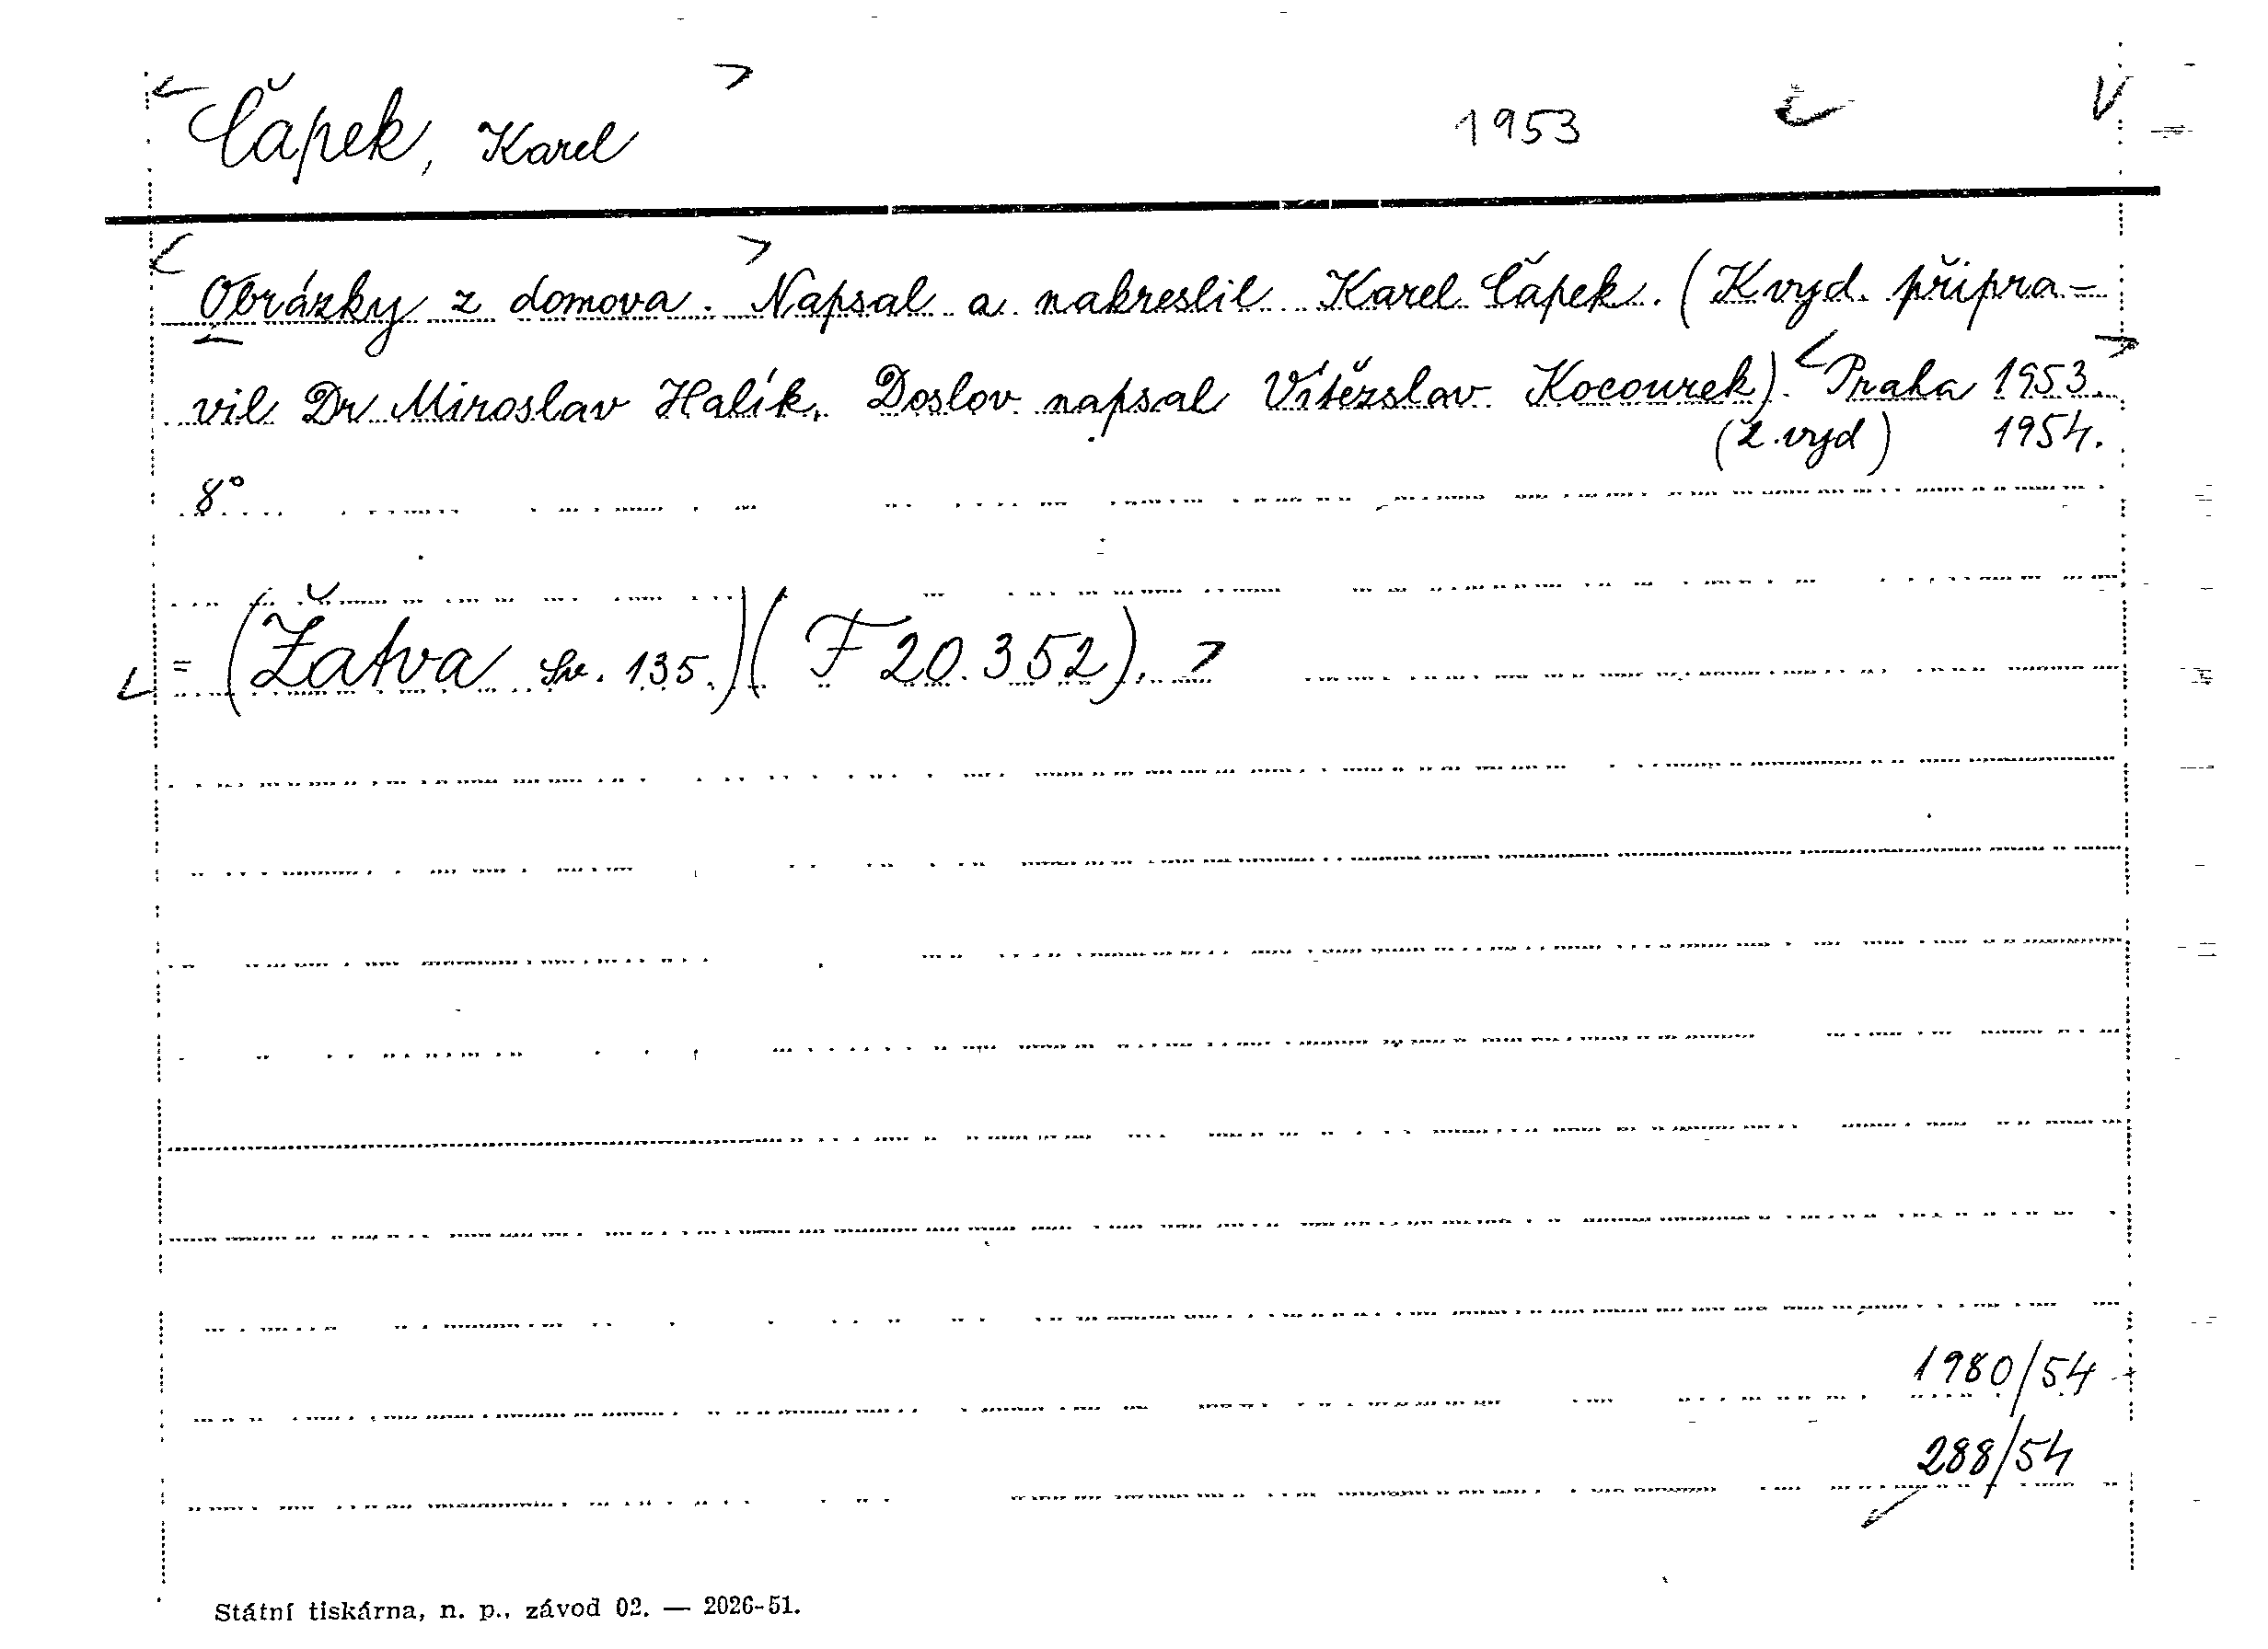 Čapek, Karel 1953 č V
Obrázky z domova. Napsal a nakreslil Karel Čapek. (K vyd. připra-
vil Dr Miroslav Halík. Doslov napsal Vítězslav Kocourek). Praha 1953.
(2. vyd) 1954.
8°
= (Žatva sv. 135.) (F 20.352).
1980/54
288/54
Státní tiskárna, n. p., závod 02. — 2026-51.